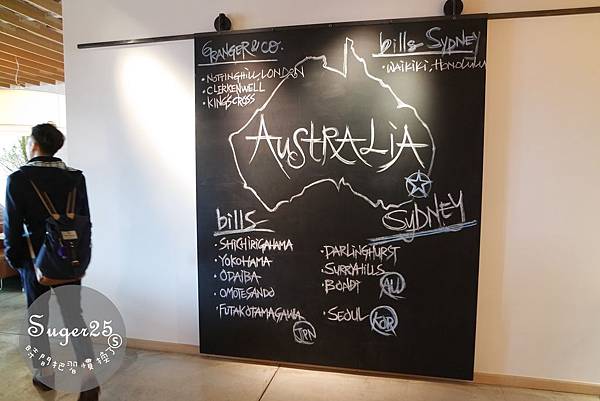 GRANGER & CO.
• NOTTINGHILL, LONDON
• CLERKENWELL
• KINGSCROSS
bills SYDNEY
• WAIKIKI, HONOLULU
AUSTRALIA
SYDNEY
bills
• SHICHIRIGAHAMA
• YOKOHAMA
• ODAIBA
• OMOTESANDO
• FUTAKOTAMAGAWA
JPN
• DARLINGHURST
• SURRYHILLS
• BONDI
AU
• SEOUL
KOR
Suger25
S
時間把習慣換了